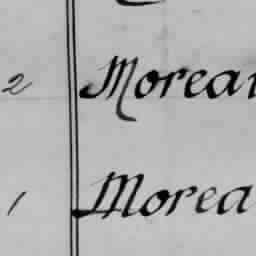 2 Moreau
1 Morea